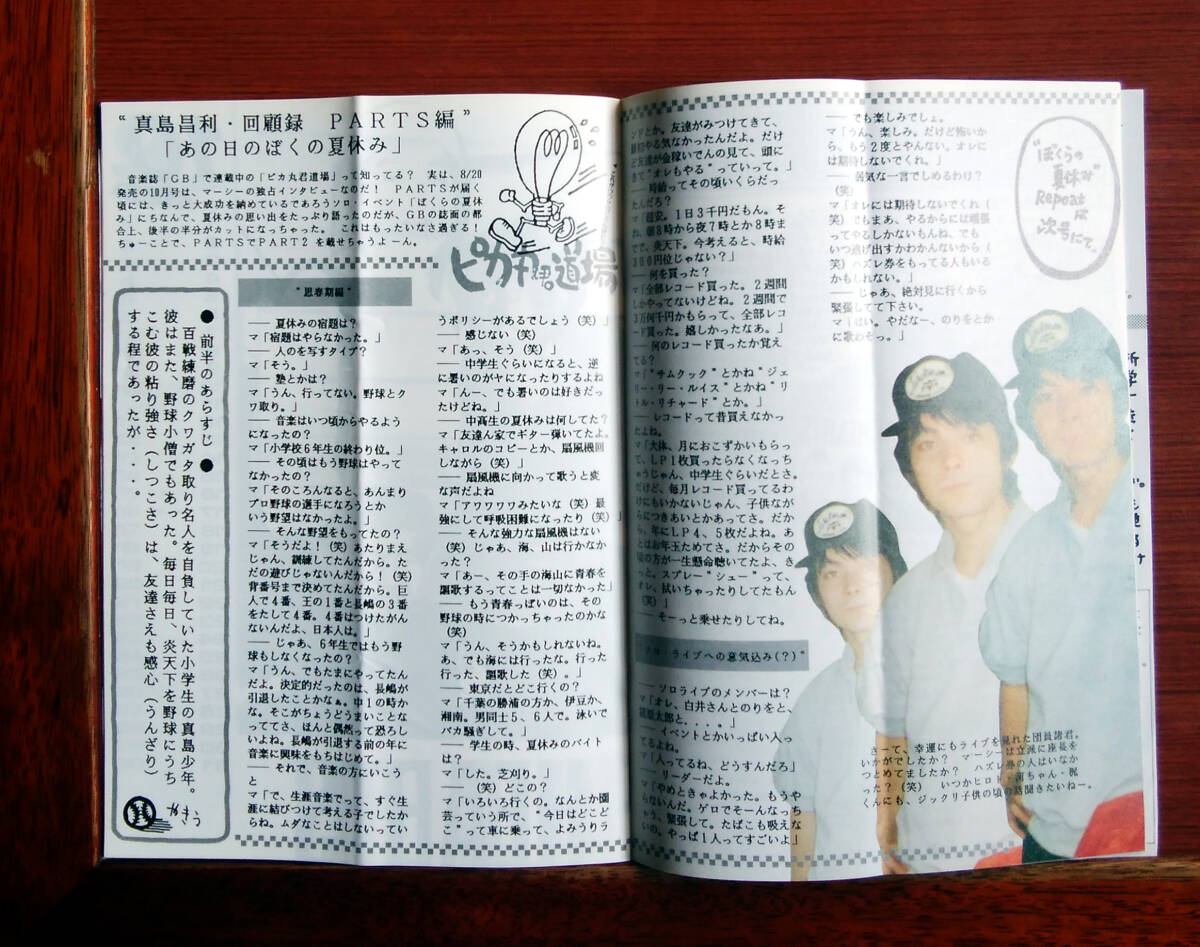 “真島昌利・回顧録　PARTS編”
「あの日のぼくの夏休み」
音楽誌「GB」で連載中の「ピカ丸君道場」って知ってる？　実は、8/20
発売の10月号は、マーシーの独占インタビューなのだ！　PARTSが届く
頃には、きっと大成功を納めているであろうソロ・イベント「ぼくらの夏休
み」にちなんで、夏休みの思い出をたっぷり語ったのだが、GBの誌面の都
合上、後半の半分がカットになっちゃった。　これはもったいなさ過ぎる！
ちゅーことで、PARTSでPART2 を載せちゃうよーん。
● 前半のあらすじ ●
百戦練磨のクワガタ取り名人を自負していた小学生の真島少年。
彼はまた、野球小僧でもあった。毎日毎日、炎天下を野球にうち
こむ彼の粘り強さ（しつこさ）は、友達さえも感心（うんざり）
する程であったが・・・・。
“思春期編”
── 夏休みの宿題は？
マ「宿題はやらなかった。」
── 人のを写すタイプ？
マ「そう。」
── 塾とかは？
マ「うん、行ってない。野球とク
ワ取り。」
── 音楽はいつ頃からやるよう
になったの？
マ「小学校6年生の終わり位。」
── その頃はもう野球はやって
なかったの？
マ「そのころんなると、あんまり
プロ野球の選手になろうとか
いう野望はなかったよ。」
── そんな野望をもってたの？
マ「そうだよ！（笑）あたりまえ
じゃん、訓練してたんだから。た
だの遊びじゃないんだから！（笑）
背番号まで決めてたんだから。巨
人で4番、王の1番と長嶋の3番
をたして4番。4番はつけたがん
ないんだよ、日本人は。」
── じゃあ、6年生ではもう野
球もしなくなったの？
マ「うん、でもたまにやってたん
だよ。決定的だったのは、長嶋が
引退したことかなぁ。中1の時か
な。そこがちょうどうまいことな
っててさ、ほんと偶然って恐ろし
いよね。長嶋が引退する前の年に
音楽に興味をもちはじめて。」
── それで、音楽の方にいこう
と
マ「で、生涯音楽でって、すぐ生
涯に結びつけて考える子でしたか
らね。ムダなことはしないってい
うポリシーがあるでしょう（笑）」
── 感じない。
マ「あっ、そう（笑）」
── 中学生ぐらいになると、逆
に暑いのがヤになったりするよね
マ「んー、でも暑いのは好きだっ
たけどね。」
── 中高生の夏休みは何してた？
マ「友達ん家でギター弾いてたよ。
キャロルのコピーとか、扇風機回
しながら（笑）」
── 扇風機に向かって歌うと変
な声だよね
マ「アワワワワみたいな（笑）最
強にして呼吸困難になったり（笑）」
── そんな強力な扇風機はない
（笑）じゃあ、海、山は行かなか
った？
マ「あー、その手の海山に青春を
謳歌するってことは一切なかった」
── もう青春っぽいのは、その
野球の時につかっちゃったのかな
（笑）
マ「うん、そうかもしれないね。
あ、でも海には行ったな。行った
行った、謳歌した（笑）。」
── 東京だとどこ行くの？
マ「千葉の勝浦の方か、伊豆か、
湘南。男同士5、6人で。泳いで
バカ騒ぎして。」
── 学生の時、夏休みのバイト
は？
マ「した。芝刈り。」
── （笑）どこの？
マ「いろいろ行くの。なんとか園
芸っていう所で、“今日はどこど
こ”って車に乗って、よみうりラ
ンドとか。友達がみつけてきて、
やる気なかったんだよ。だけ
ど友達が金稼いでんの見て、頭に
“オレもやる”っていって。」
── 時給ってその頃いくらだっ
たんだろ？
マ「超安。1日3千円だもん。そ
れ、朝8時から夜7時とか8時ま
でで、炎天下。今考えると、時給
300円位じゃない？」
── 何を買った？
マ「全部レコード買った。2週間
しかやってないけどね。2週間で
3万何千円かもらって、全部レコ
ード買った。嬉しかったなあ。」
── 何のレコード買ったか覚え
てる？
マ「“サムクック”とかね“ジェ
リー・リー・ルイス”とかね“リ
トル・リチャード”とか。」
── レコードって昔買えなかっ
たよね。
マ「大体、月におこずかいもらっ
て、LP1枚買ったらなくなっち
ゃうじゃん、中学生ぐらいだとさ。
だけど、毎月レコード買ってるわ
けにもいかないじゃん、子供なが
らにつきあいとかあってさ。だか
ら、年にLP4、5枚だよね。あ
とはお年玉ためてさ。だからその
頃の方が一生懸命聴いてたよ、き
っと。スプレー“シュー”って、
オレ、拭いちゃったりしてたもん
（笑）」
── そーっと乗せたりしてね。
・ライブへの意気込み(？)”
── ソロライブのメンバーは？
マ「オレ、白井さんとのりをと、
太郎と、・・・。」
── イベントとかいっぱい入っ
てるよね。
マ「入ってるね、どうすんだろ」
── リーダーだよ。
マ「やめときゃよかった。もうや
らないんだ。ゲロでそーんなっち
ゃう、緊張して。たばこも吸えな
いの。やっぱ1人ってすごいよ」
── でも楽しみでしょ。
マ「うん、楽しみ。だけど怖いか
ら、もう2度とやんない。オレに
は期待しないでくれ。」
── 弱気な一言でしめるわけ？
（笑）
マ「オレには期待しないでくれ（
笑）でもまあ、やるからには頑張
ってやるしかないもんね、でも
いつ逃げ出すかわかんないから（
笑）ハズレ券をもってる人もいる
かもしれない。」
── じゃあ、絶対見に行くから
緊張してて下さい。
マ「はい。やだなー、のりをとか
に歌わそっ。」
“ぼくらの
夏休み”
Repeatは
次号にて。
さーて、幸運にもライブを見れた団員諸君。
いかがでしたか？　マーシーは立派に座長を
つとめてましたか？　ハズレ券の人はいなか
った？（笑）　いつかヒロト・河ちゃん・梶
くんにも、ジックリ子供の頃の話聞きたいねー。